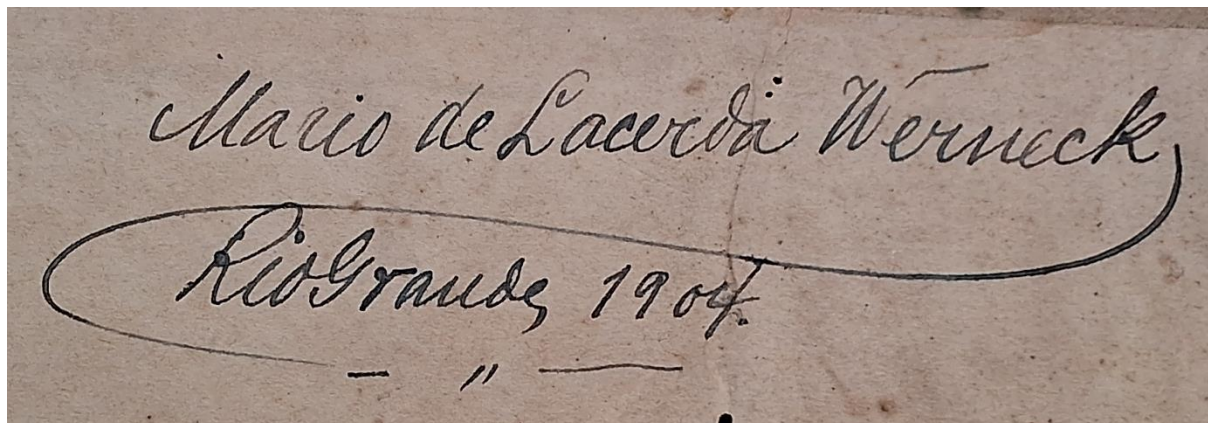 Mario de Lacerda Werneck
Rio Grande, 1904.
— „ —